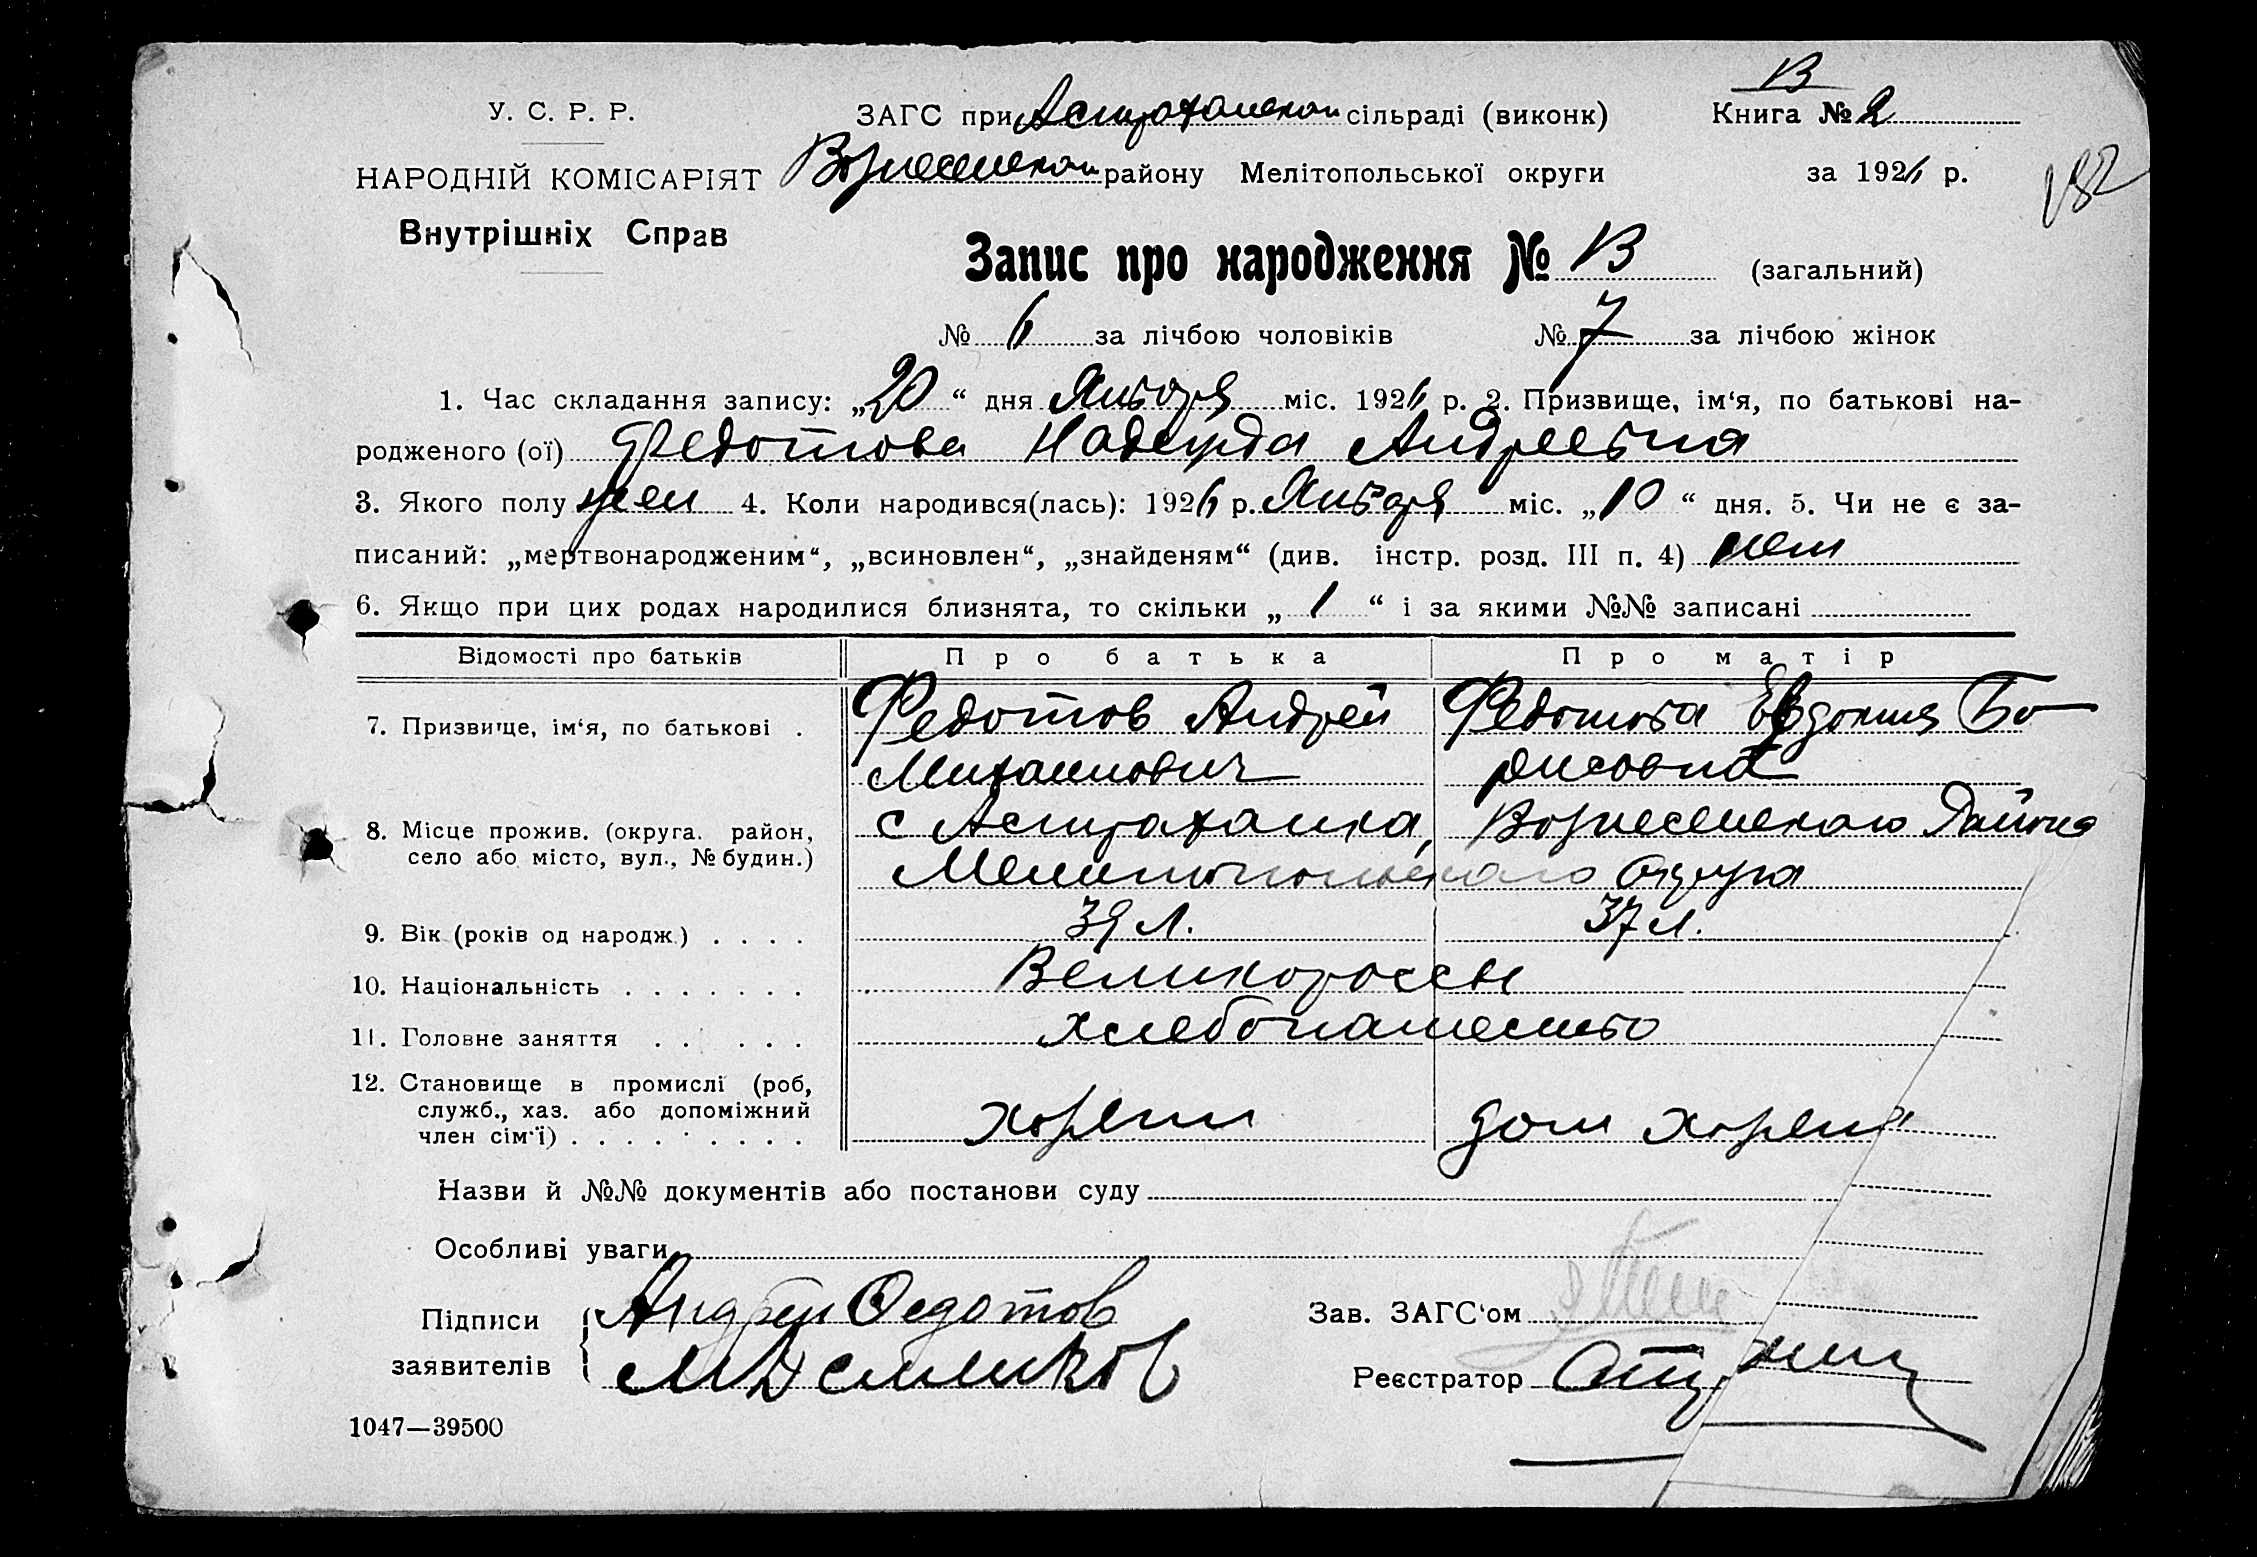 13
У. С. Р. Р. ЗАГС при Астраханском сільраді (виконк) Книга № 2
НАРОДНІЙ КОМІСАРІЯТ Вознесенском району Мелітопольської округи за 1926 р.
182
Внутрішніх Справ
Запис про народження № 13 (загальний)
№ 6 за лічбою чоловіків № 7 за лічбою жінок
1. Час складання запису: „20“ дня Января міс. 1926 р. 2. Призвище, ім‘я, по батькові на-
родженого (ої) Федотова Надежда Андреевна
3. Якого полу жен 4. Коли народився(лась): 1926 р. Января міс. „10“ дня. 5. Чи не є за-
писаний: „мертвонародженим“, „всиновлен“, „знайденям“ (див. інстр. розд. III п. 4) нет
6. Якщо при цих родах народилися близнята, то скільки „1“ і за якими №№ записані
Відомості про батьків Про батька Про матір
7. Призвище, ім‘я, по батькові . Федотов Андрей Федотова Евдокия Бо-
Михайлович рисовна
8. Місце прожив. (округа. район, с Астраханка, Вознесенского Района
село або місто, вул., № будин.) Мелитопольского Округа
9. Вік (років од народж.) . . . . 39 л. 37 л.
10. Національність . . . . . . . Великороссы
11. Головне заняття . . . . . хлебопашество
12. Становище в промислі (роб,
служб., хаз. або допоміжний
член сім‘ї) . . . . . . . . . хозяин дом хозяйка
Назви й №№ документів або постанови суду
Особливі уваги
Підписи Андрей Федотов Зав. ЗАГС‘ом
заявителів Реєстратор
1047—39500